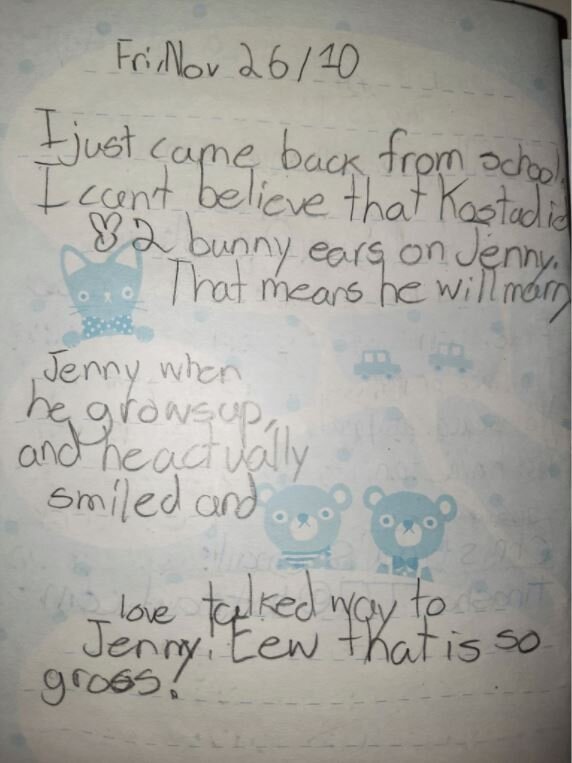 Fri, Nov 26/10
I just came back from school.
I can't believe that Kostadid
2 bunny ears on Jenny.
That means he will marry
Jenny when
he grows up,
and he actually
smiled and
love talked way to
Jenny! Eew that is so
gross!